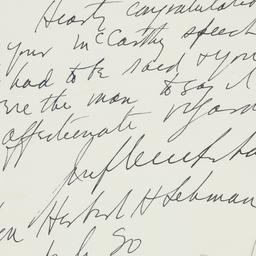 Hearty congratulatio
your McCarthy speech
had to be said & you
ere the man to say it
affectionate regard
Herbert H Lehman